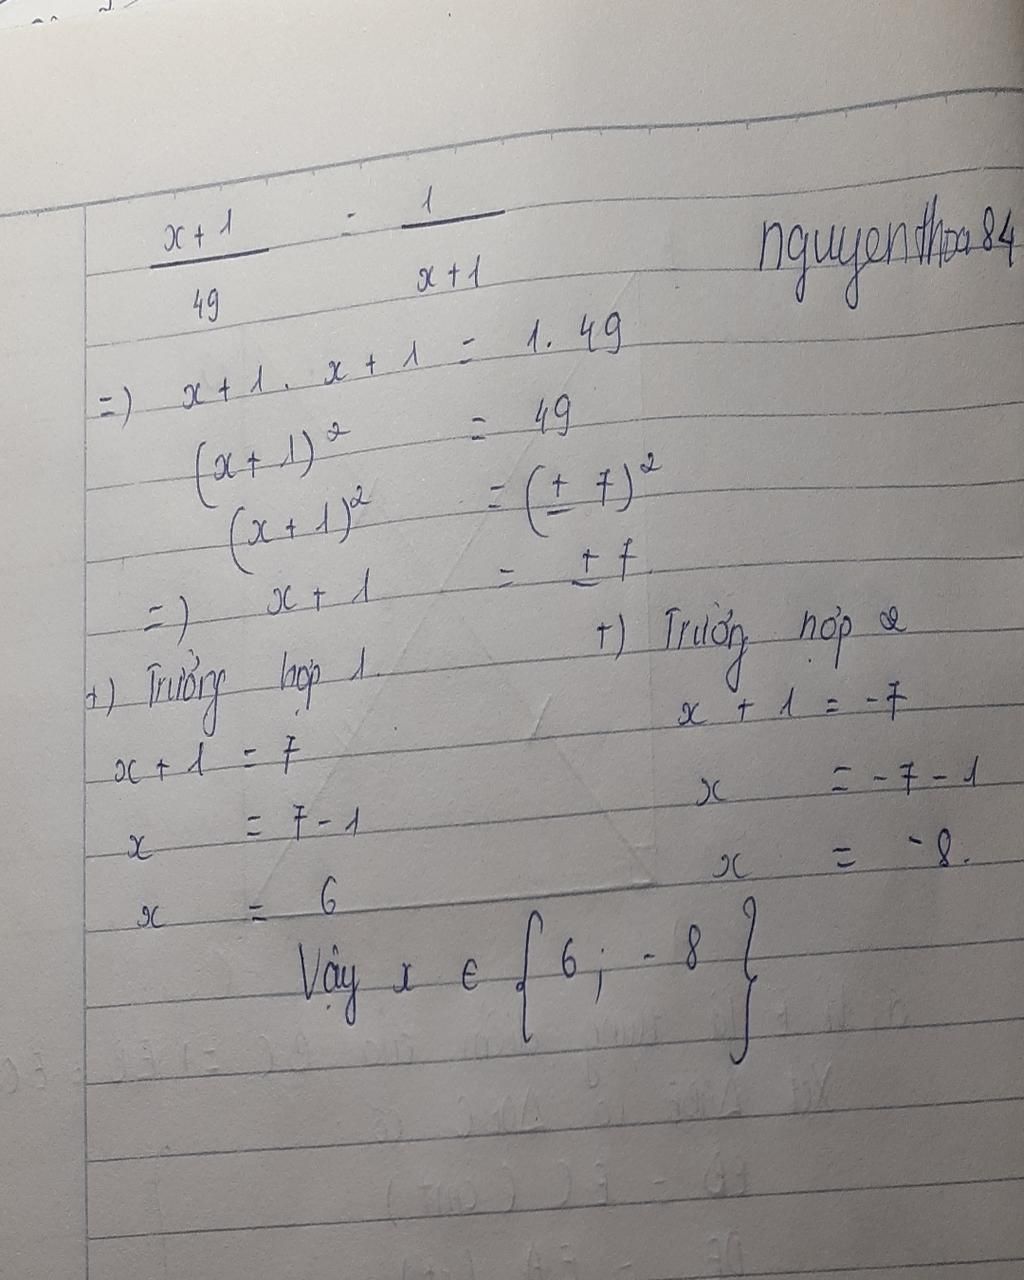 x + 1 / 49 = 1 / x + 1
nguyenthoa84
=) x + 1 . x + 1 = 1. 49
(x + 1)² = 49
(x + 1)² = (± 7)²
=) x + 1 = ± 7
+) Trường hợp 1.
x + 1 = 7
x = 7 - 1
x = 6
+) Trường hợp 2
x + 1 = -7
x = - 7 - 1
x = -8.
Vậy x ∈ { 6 ; - 8 }